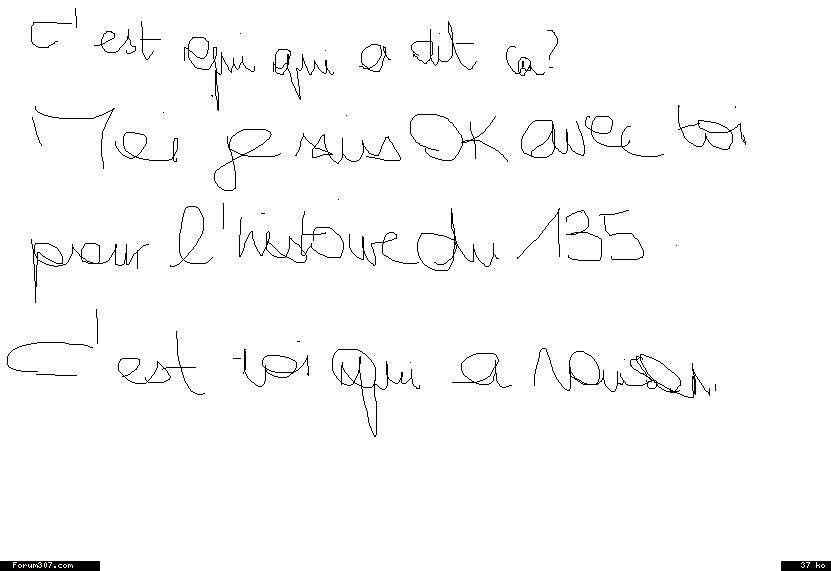 C'est qui qui a dit ça?
Moi je suis OK avec toi
pour l'histoire du 135.
C'est toi qui a raison.
Forum307.com
37 ko